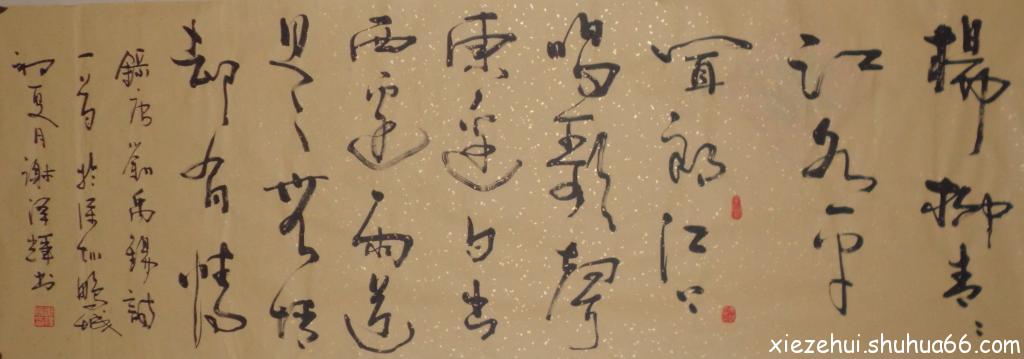 楊柳青〻
江水平
聞郎江上
唱歌聲
東邊日出
西邊雨道
是無情
却有情
錄唐劉禹錫詩
一首於深圳鵬城
初夏月謝澤輝书
xiezehui.shuhua66.com